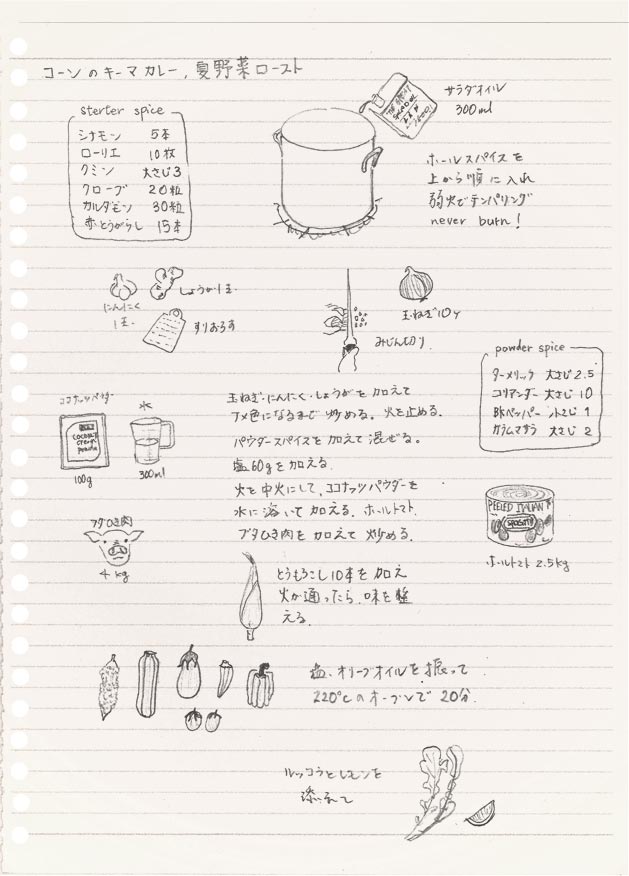 コーンのキーマカレー, 夏野菜ロースト
sterter spice
シナモン 5本
ローリエ 10枚
クミン 大さじ3
クローブ 20粒
カルダモン 30粒
赤とうがらし 15本
サラダオイル
300ml
ホールスパイスを
上から順に入れ
弱火でテンパリング
never burn!
にんにく
1玉
しょうが1玉
すりおろす
玉ねぎ10ヶ
みじん切り
powder spice
ターメリック 大さじ2.5
コリアンダー 大さじ10
BKペッパー 小さじ1
ガラムマサラ 大さじ2
ココナッツパウダー
COCONUT
cream
powder
100g
水
300ml
玉ねぎ・にんにく・しょうがを加えて
アメ色になるまで炒める。火を止める。
パウダースパイスを加えて混ぜる。
塩60gを加える.
火を中火にして、ココナッツパウダーを
水に溶いて加える. ホールトマト.
ブタひき肉を加えて炒める.
ブタひき肉
4kg
PEELED ITALIAN
ホールトマト 2.5kg
とうもろこし10本を加え
火が通ったら、味を整
える.
塩、オリーブオイルを振って
220℃のオーブンで20分.
ルッコラとレモンを
添えて